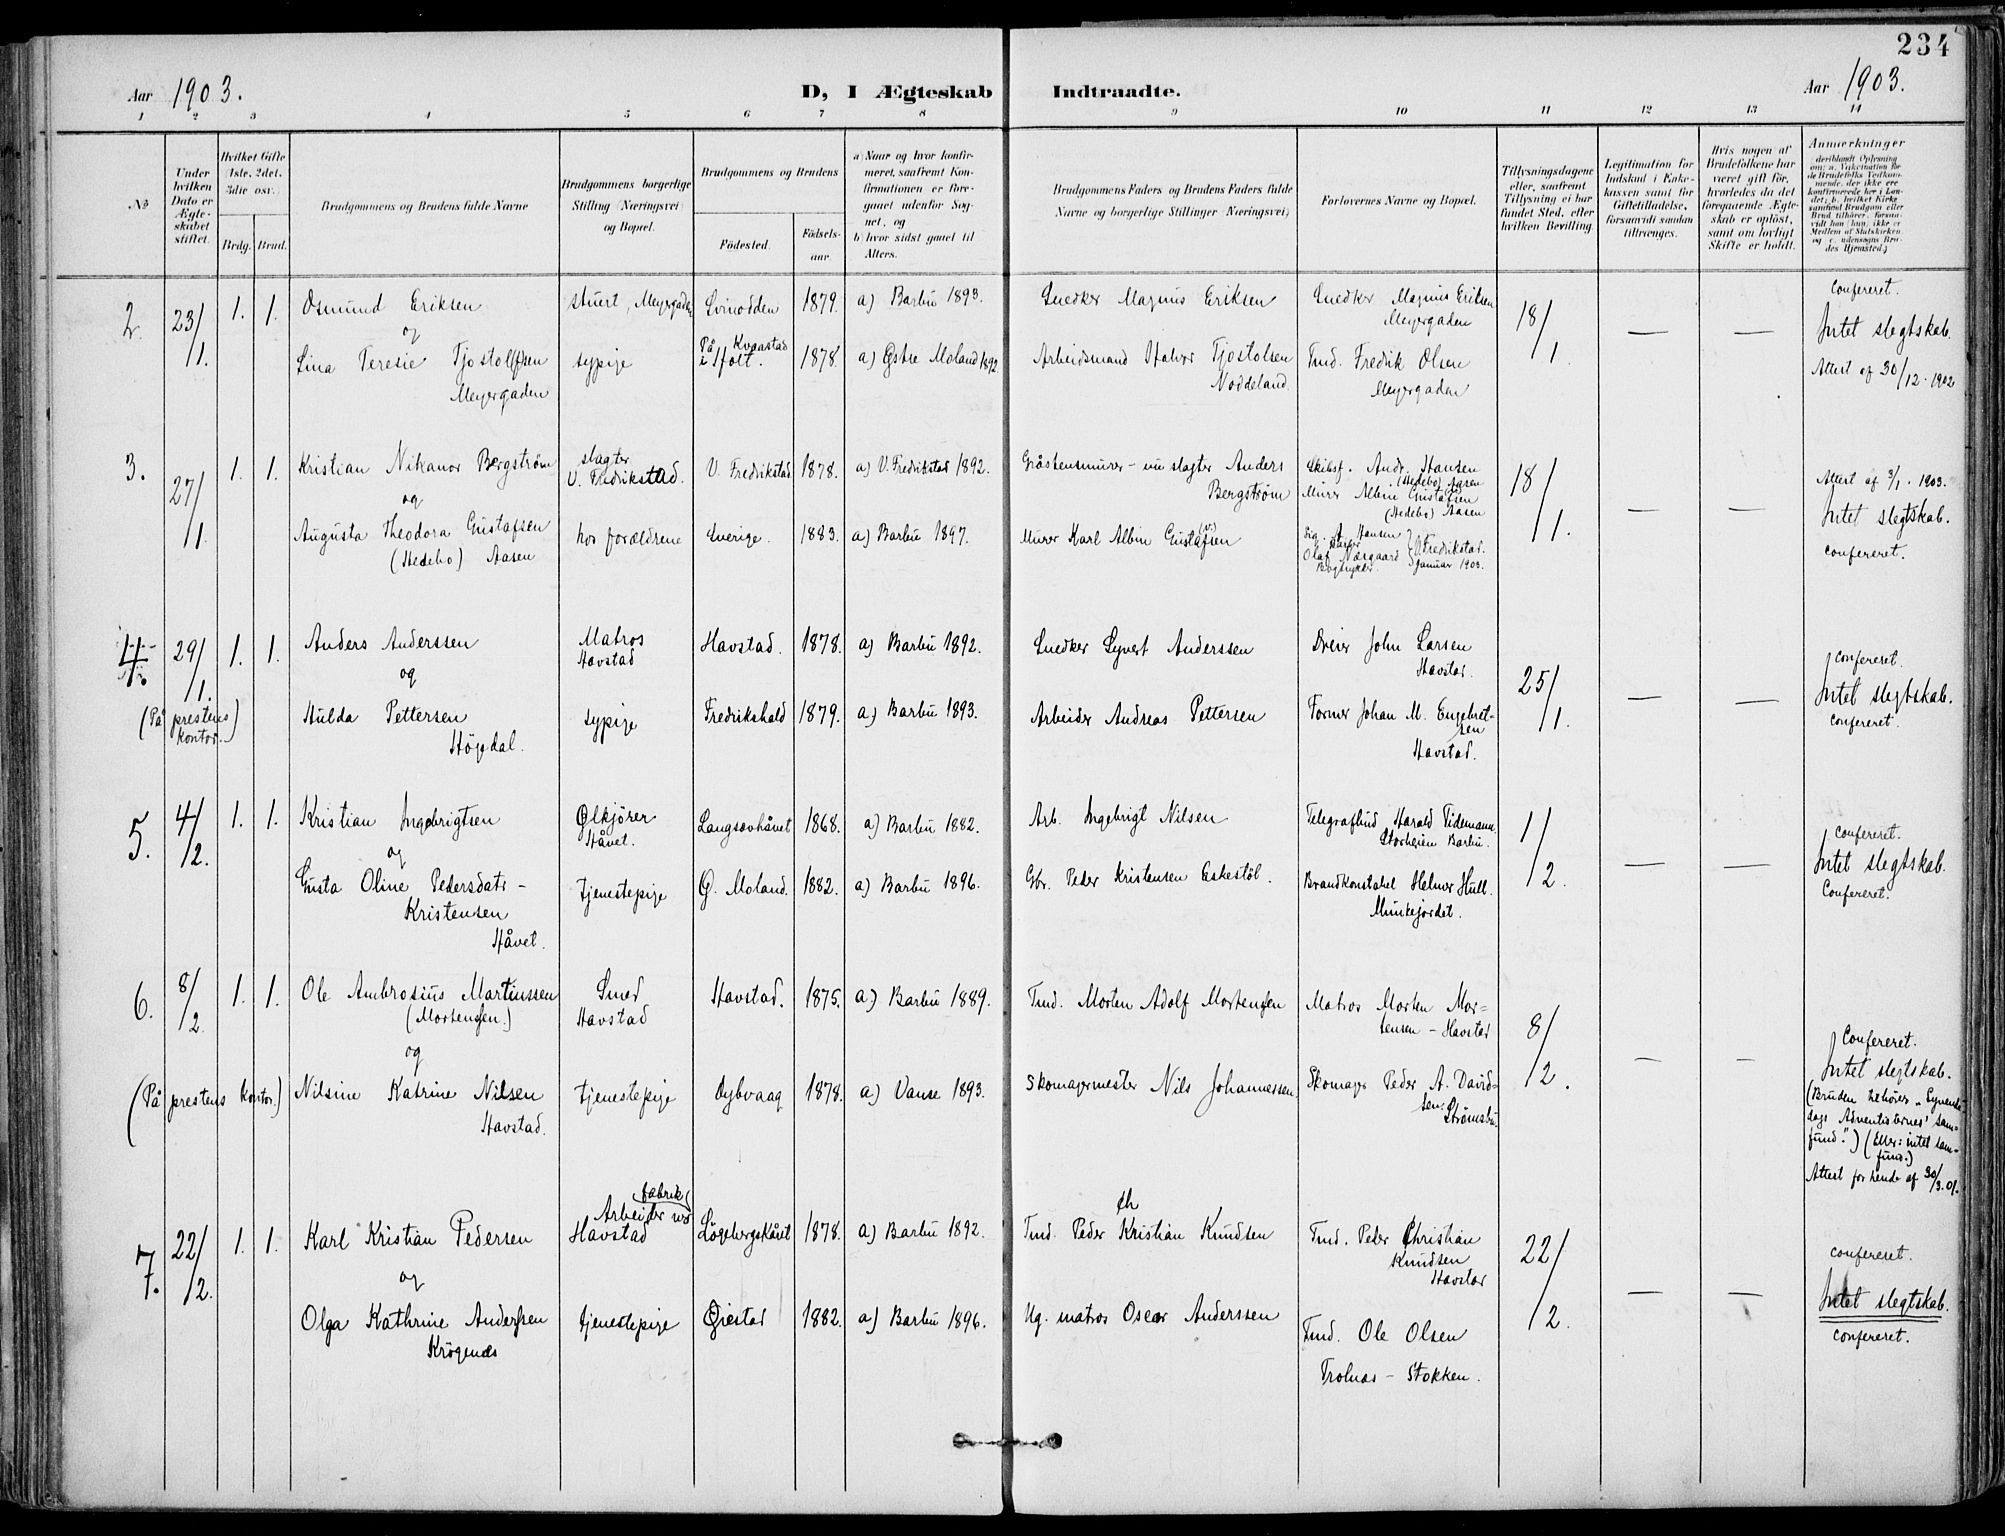 234
Aar 1903.
D, I Ægteskab Indtraadte.
Aar 1903.
1 2 3 4 5 6 7 8 9 10 11 12 13 14
No
Under hvilken Dato er Ægteskabet stiftet.
Hvilket Gifte (1ste, 2det, 3die osv.)
Brdg. Brud.
Brudgommens og Brudens fulde Navne
Brudgommens borgerlige Stilling (Næringsvei) og Bopæl.
Brudgommens og Brudens
Födested.
Födsels-aar.
a) Naar og hvor konfirmeret, saafremt Konfirmationen er foregaaet udenfor Sognet, og
b) hvor sidst gaaet til Alters.
Brudgommens Faders og Brudens Faders fulde Navne og borgerlige Stillinger (Næringsvei)
Forlovernes Navne og Bopæl.
Tillysningsdagene eller, saafremt Tillysning ei har fundet Sted, efter hvilken Bevilling.
Legitimation for Indskud i Enkekassen samt for Giftetilladelse, forsaavidt saadan tiltrænges.
Hvis nogen af Brudefolkene har været gift før, hvorledes da det foregaaende Ægteskab er oplöst, samt om lovligt Skifte er holdt.
Anmerkninger
2. 23/1. 1. 1. Osmund Eriksen stuert, Meyergaden Svinodden 1879. a) Barbu 1893. Snedker Magnus Eriksen Snedker Magnus Eriksen Meyergaden 18/1. — — Confereret.
og Intet slegtskab.
Lina Teresie Tjostolfsen sypige På Kvaastad i Holt. 1878. a) Østre Moland 1892. Arbeidsmand Halvor Tjostolsen Tmd. Fredrik Olsen Attest af 30/12. 1902
Meyergaden Noddeland. Meyergaden
3. 27/1. 1. 1. Kristian Nikanor Bergström slagter V. Fredrikstad. V. Fredrikstad 1878. a) V. Fredrikstad 1892. Gråstensmurer - nu slagter Anders Bergström Skibsf. Andr. Hansen (Hedebo) Aasen 18/1. — — Attest af 3/1. 1903.
og Murer Albin Gustafsen (Hedebo) Aasen Intet slegtskab.
Augusta Theodora Gustafsen hos forældrene Sverige. 1883. a) Barbu 1897. Murer Karl Albin Gustafsen Sig. A. Hansen
(Hedebo) Aasen Olaf Nørgaard Bogtrykker V. Fredrikstad. Januar 1903. confereret.
4. 29/1. 1. 1. Anders Anderssen Matros Havstad Havstad. 1878. a) Barbu 1892. Snedker Syvert Anderssen Dreier John Larsen Havstad. 25/1. — — confereret.
og Intet slegtskab.
(På prestens kontor.) Hulda Pettersen sypige Fredrikshald 1879. a) Barbu 1893. Arbeider Andreas Pettersen Former Johan M. Engebretsen Havstad. confereret.
Högedal.
5. 4/2. 1. 1. Kristian Ingebrigtsen Ølkjører Håvet. Langsævhåvet 1868. a) Barbu 1882. Arb. Ingebrigt Nilsen Telegrafbud Harald Tidemann. Storheien Barbu. 1/2. — — Confereret.
og Intet slegtskab.
Gusta Oline Pedersdatr - Tjenestepige Ø. Moland. 1882. a) Barbu 1896. Gbr. Peder Kristensen Eskestöl. Brandkonstabel Helmer Hull. Munkejordet. Confereret.
Kristensen
Håvet.
6. 8/2. 1. 1. Ole Ambrosius Martinssen (Mortensen.) Smed Havstad Havstad. 1875. a) Barbu 1889. Tmd. Morten Adolf Mortensen Matros Morten Mortensen - Havstad 8/2. — — Confereret.
og Intet slegtskab.
(På prestens kontor.) Nilsine Katrine Nilsen tjenestepige Dybvaag 1878. a) Vanse 1893. Skomagermester Nils Johannessen. Skomager Peder A. Davidsen. Strömsbu. (Bruden tilhører „Syvende dags Adventisternes' samfund.") (Eller: intet samfund.)
Havstad. Attest for hende af 30/3.01.
7. 22/2. 1. 1. Karl Kristian Pedersen Arbeider ved fabrik Havstad Lögebergskåret 1878. a) Barbu 1892. Tmd. Peder Ch Kristian Knudsen Tmd. Peder Christian Knudsen Havstad 22/2. — — confereret.
og Intet slegtskab.
Olga Kathrine Anderssen tjenestepige Øiestad 1882. a) Barbu 1896. Ug. matros Oscar Anderssen Tmd. Ole Olsen confereret.
Krögenæs Trolnæs - Stokken.